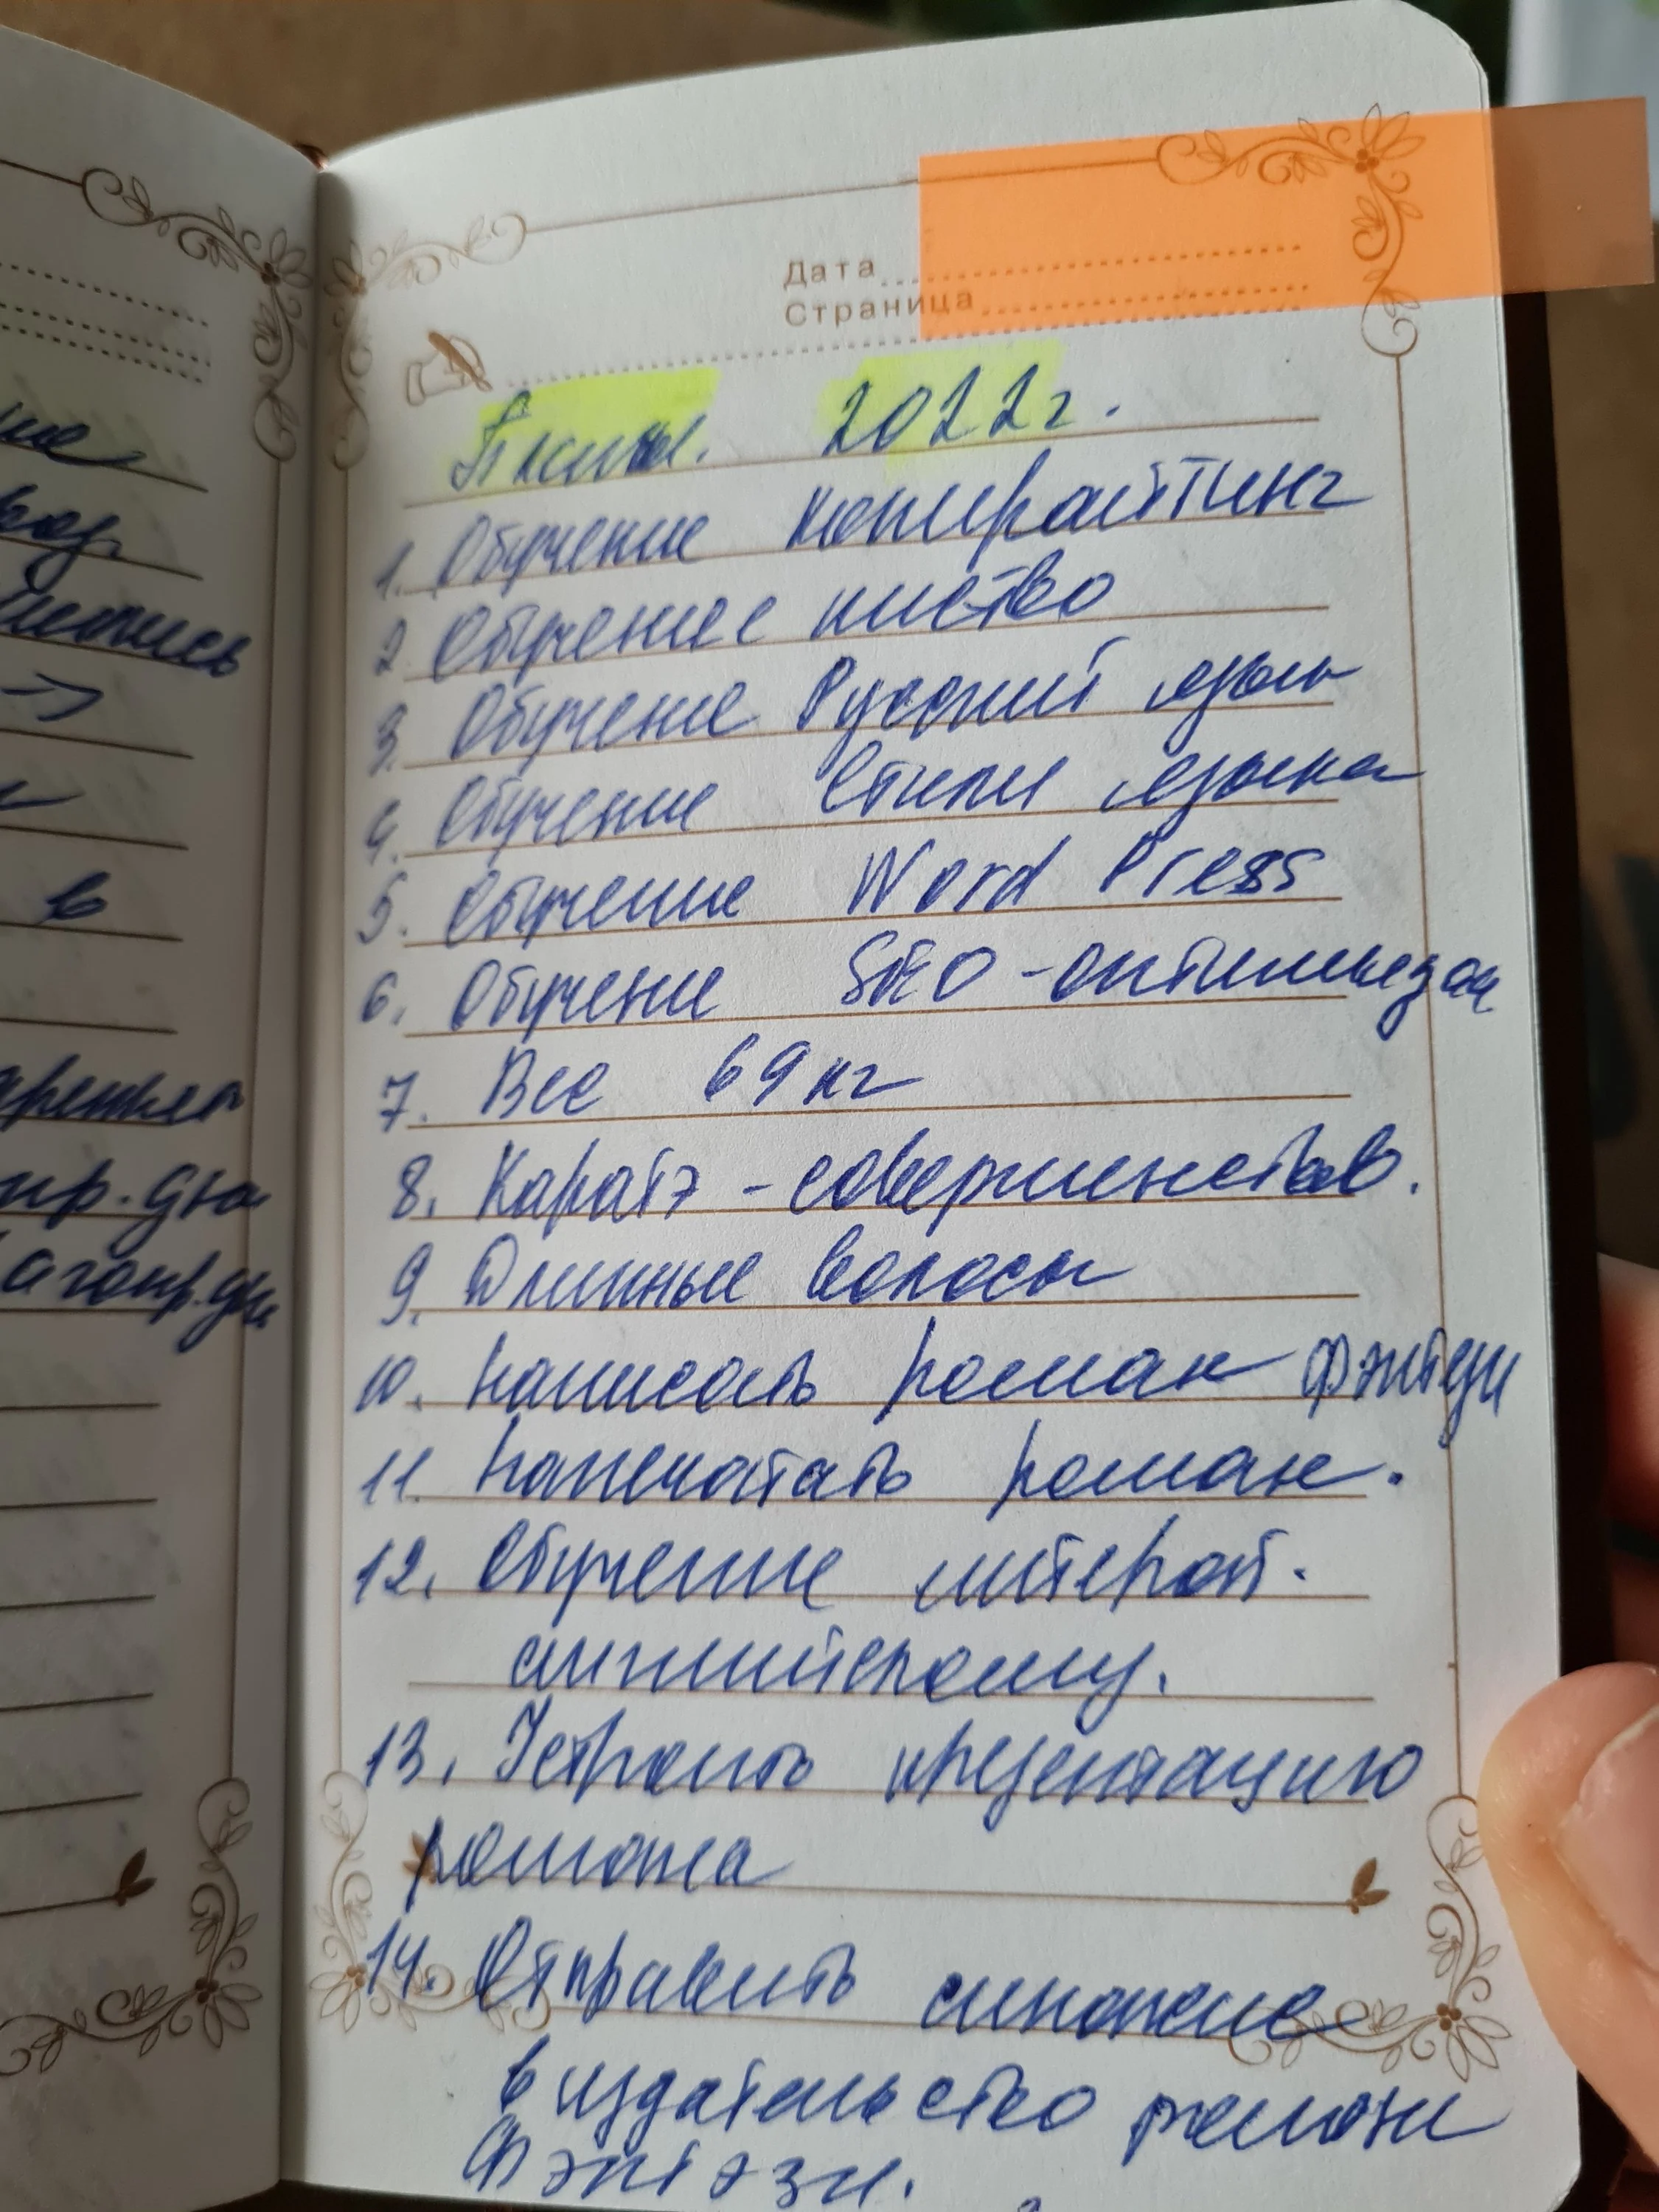 Дата
Страница
Планы. 2022г.
1. Обучение копирайтинг
2. Обучение
3. Обучение Русский язык
4. Обучение Стили языка
5. Обучение Word Press
6. Обучение SEO-оптимизац
7. Вес 69кг
8. Каратэ - совершенствов.
9. Длинные волосы
10. Написать роман фэнтези
11. Напечатать роман.
12. Обучение литерат.
английскому.
13. Устроить презентацию
романа
14. Отправить
в издательство романы
Фэнтэзи.
в